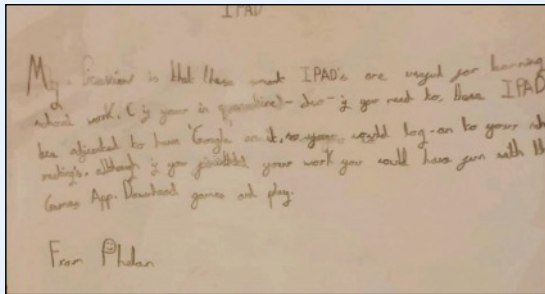 IPAD
My is that these IPAD's are useful for learning
school work. ( if your in quarantine) - also - if you need to, these IPAD
be adjusted to have Google on it, so you would log-on to your
meeting's, although if you finished your work you could have fun with th
Games App. Download games and play.
From Phelan